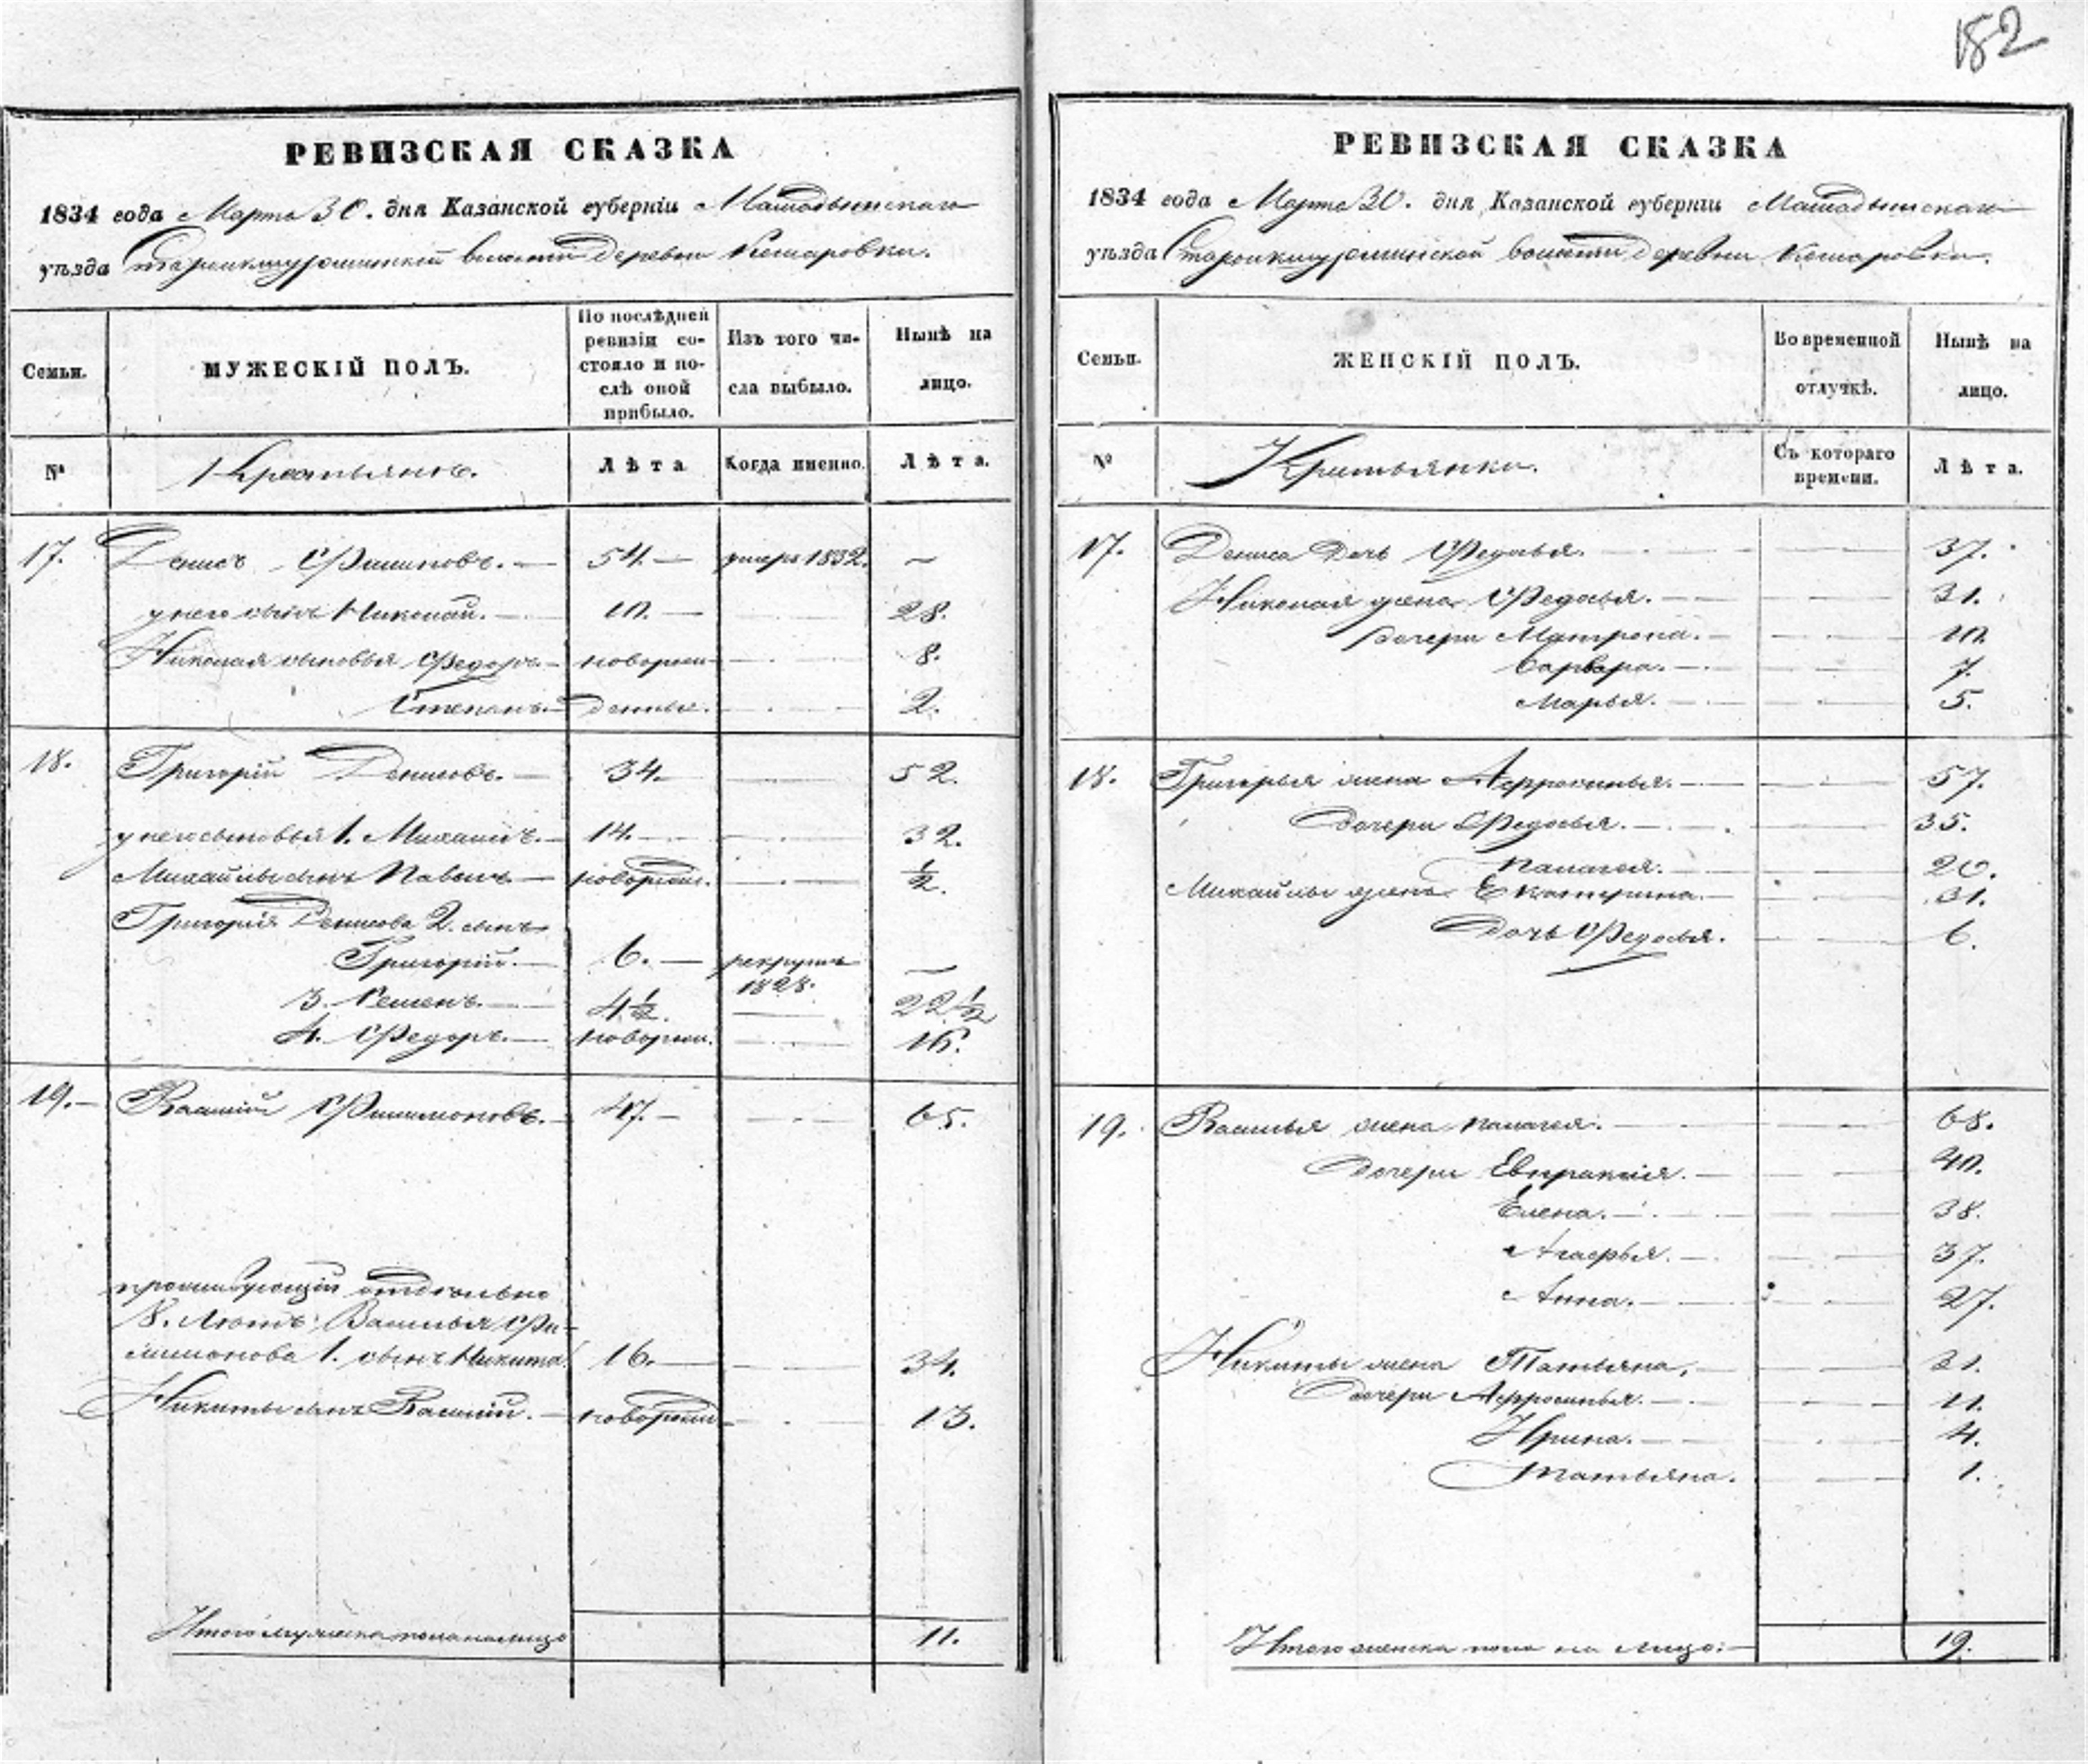 182
РЕВИЗСКАЯ СКАЗКА
1834 года Марта 30. дня Казанской губерніи Мамадышскаго
уѣзда волости деревни Комаровки.
Семьи.
МУЖЕСКІЙ ПОЛЪ.
По послѣдней ревизіи со-
стояло и по-
слѣ оной
прибыло.
Изъ того чи-
сла выбыло.
Нынѣ на
лицо.
№
Крестьянъ.
Лѣта
Когда именно.
Лѣта.
17. Денисъ Филиповъ. — 54. — умеръ 1832. —
у него сынъ Николай. — 10. — 28.
Николая сыновья Федоръ. — новорож- 8.
Степанъ. — денные. 2.
18. Григорій Денисовъ. — 34. — 52.
у него сыновья 1. Михаилъ. — 14. — 32.
Михайлы сынъ Павелъ — новорож. ½.
Григорія Денисова 2. сынъ
Григорій. — 6. — рекрутъ 1828. —
3. Семенъ. — 4½. 22½
4. Федоръ. — новорож. 16.
19. — Василій Филимоновъ. — 47. — 65.
отдельно
8. лѣтъ Василья Фи-
лимонова 1. сынъ Никита. 16. — 34.
Никиты сынъ Василій. — новорож 13.
Итого мужеска пола на лицо 11.
РЕВИЗСКАЯ СКАЗКА
1834 года Марта 30. дня Казанской губерніи Мамадышскаго
уѣзда волости деревни Комаровки.
Семьи.
ЖЕНСКІЙ ПОЛЪ.
Во временной
отлучкѣ.
Нынѣ на
лицо.
№
Крестьянки.
Съ котораго
времени.
Лѣта.
17. Дениса дочь Федосья. 37.
Николая жена Федосья. — 31.
дочери Матрена. — 10.
Варвара. — 7.
Марья. — 5.
18. Григорья жена Афросинья. — 57.
дочери Федосья. — 35.
Палагея. 20.
Михайлы жена Екатерина. — 31.
дочь Федосья. 6.
19. Василья жена Палагея. — 68.
дочери Евпраксія. — 40.
Елена. — 38.
Агафья. — 37.
Анна. — 27.
Никиты жена Татьяна. — 31.
дочери Афросинья. — 11.
Ирина. — 4.
Татьяна. 1.
Итого женска пола на лицо: — 19.